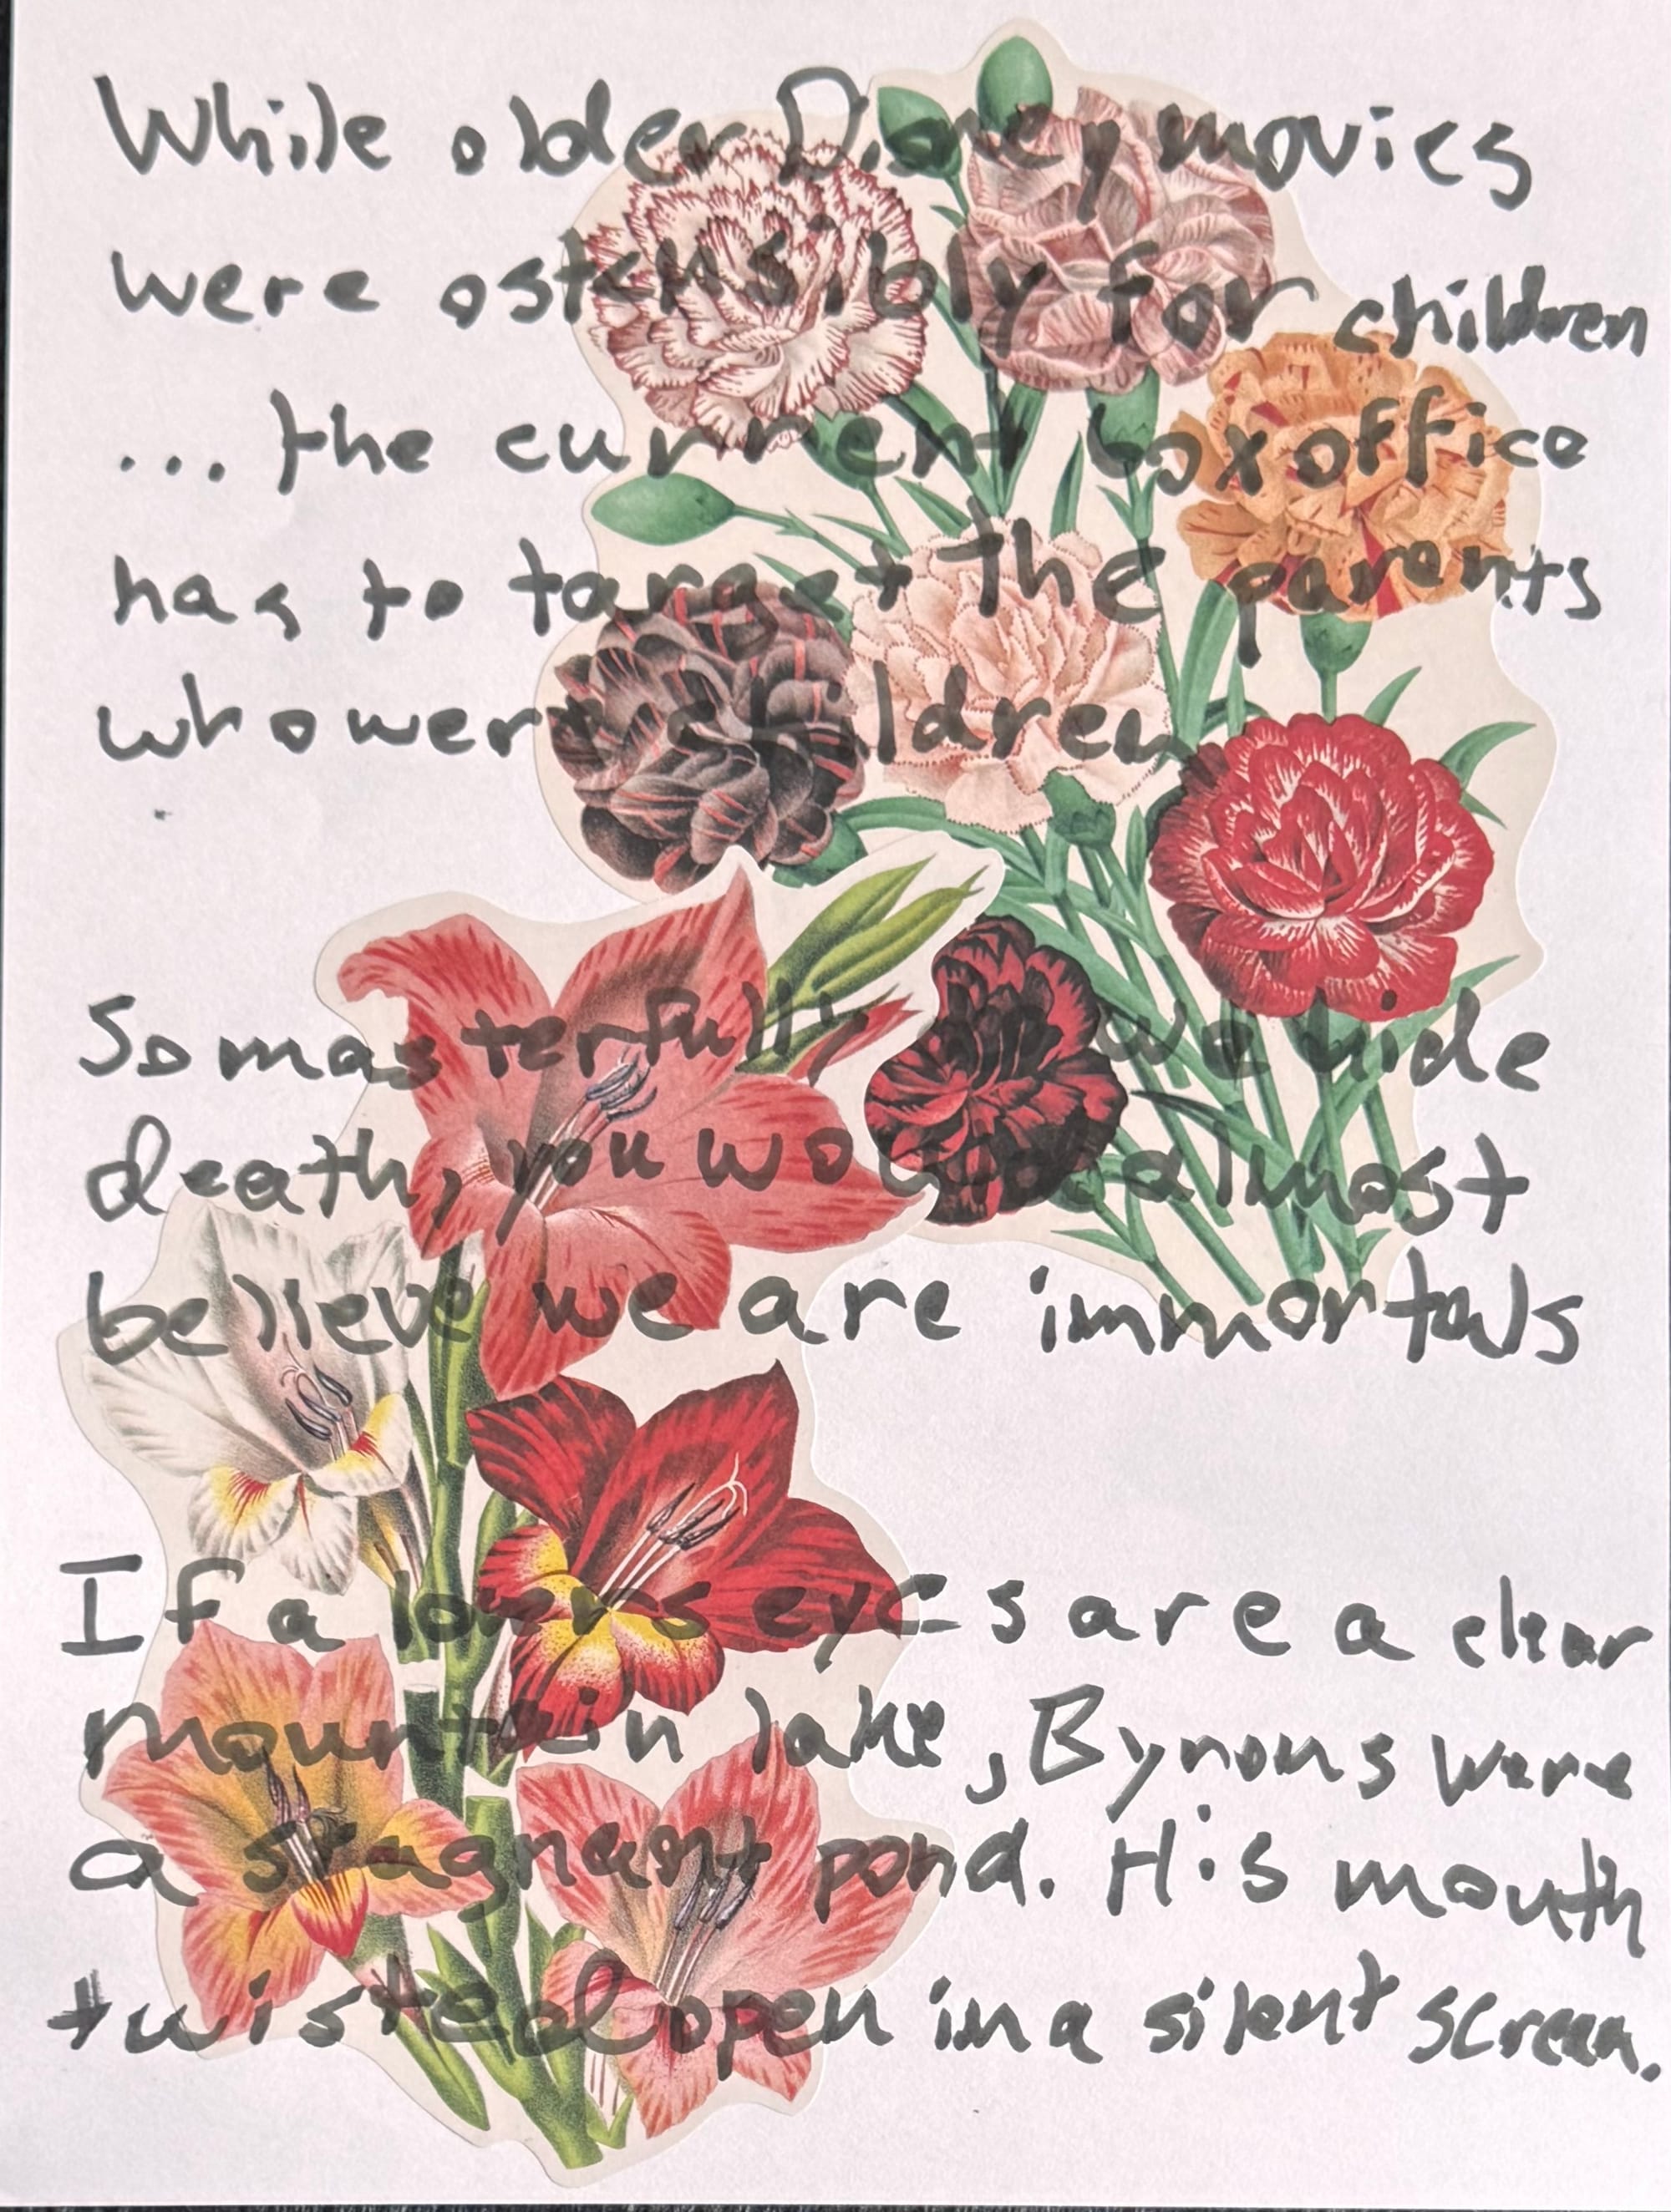 While older Disney movies
were ostensibly for children
... the current box office
has to target the parents
who were children
So masterfully do we hide
death, you would almost
believe we are immortals
If a lover's eyes are a clear
mountain lake, Byrons were
a stagnant pond. His mouth
twisted open in a silent scream.